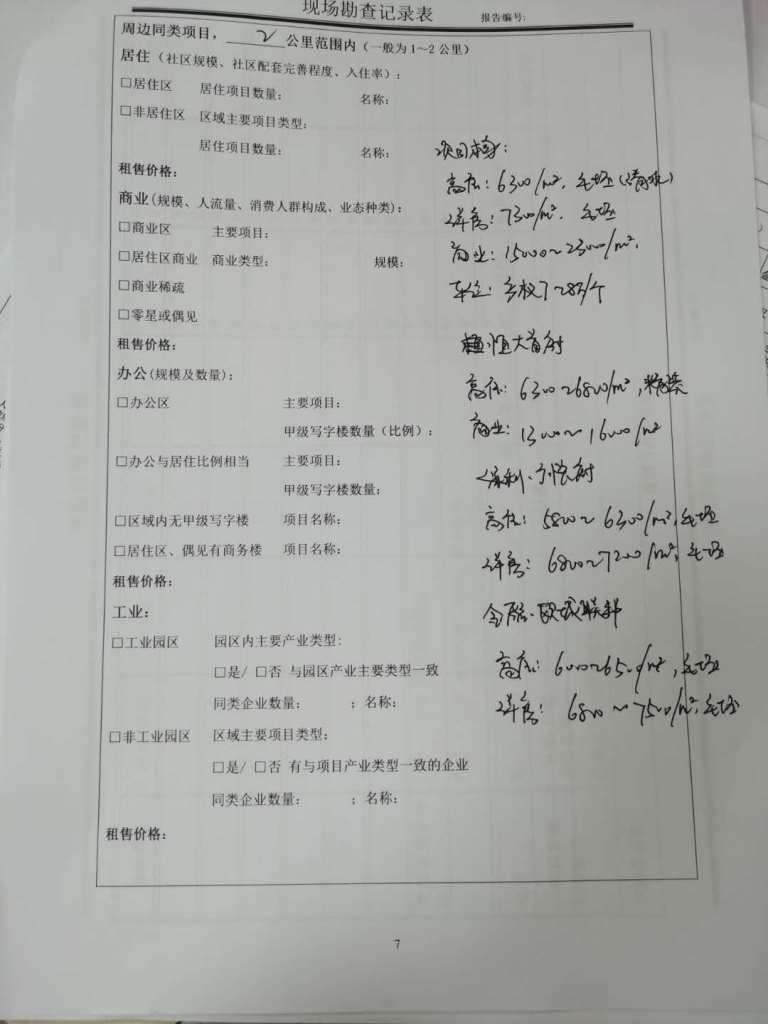 现场勘查记录表 报告编号:
周边同类项目，2公里范围内（一般为1～2公里）
居住（社区规模、社区配套完善程度、入住率）:
□居住区 居住项目数量: 名称:
□非居住区 区域主要项目类型:
居住项目数量: 名称:
项目本身:
租售价格:
高层: 6300/m², 毛坯
商业(规模、人流量、消费人群构成、业态种类):
洋房: 7300/m². 毛坯
□商业区 主要项目:
商业: 15000~23000/m².
□居住区商业 商业类型: 规模:
□商业稀疏
车位:
□零星或偶见
租售价格:
恒大首府
办公(规模及数量):
高层: 6300~6800/m², 精装
□办公区 主要项目:
甲级写字楼数量（比例）:
商业: 13000~16000/m²
□办公与居住比例相当 主要项目:
保利·
甲级写字楼数量:
高层: 5800~6300/m², 毛坯
□区域内无甲级写字楼 项目名称:
□居住区、偶见有商务楼 项目名称:
洋房: 6800~7200/m², 毛坯
租售价格:
工业:
□工业园区 园区内主要产业类型:
高层: 6000~6500/m², 毛坯
□是/ □否 与园区产业主要类型一致
同类企业数量: ；名称:
洋房: 6800~7500/m², 毛坯
□非工业园区 区域主要项目类型:
□是/ □否 有与项目产业类型一致的企业
同类企业数量: ；名称:
租售价格:
7